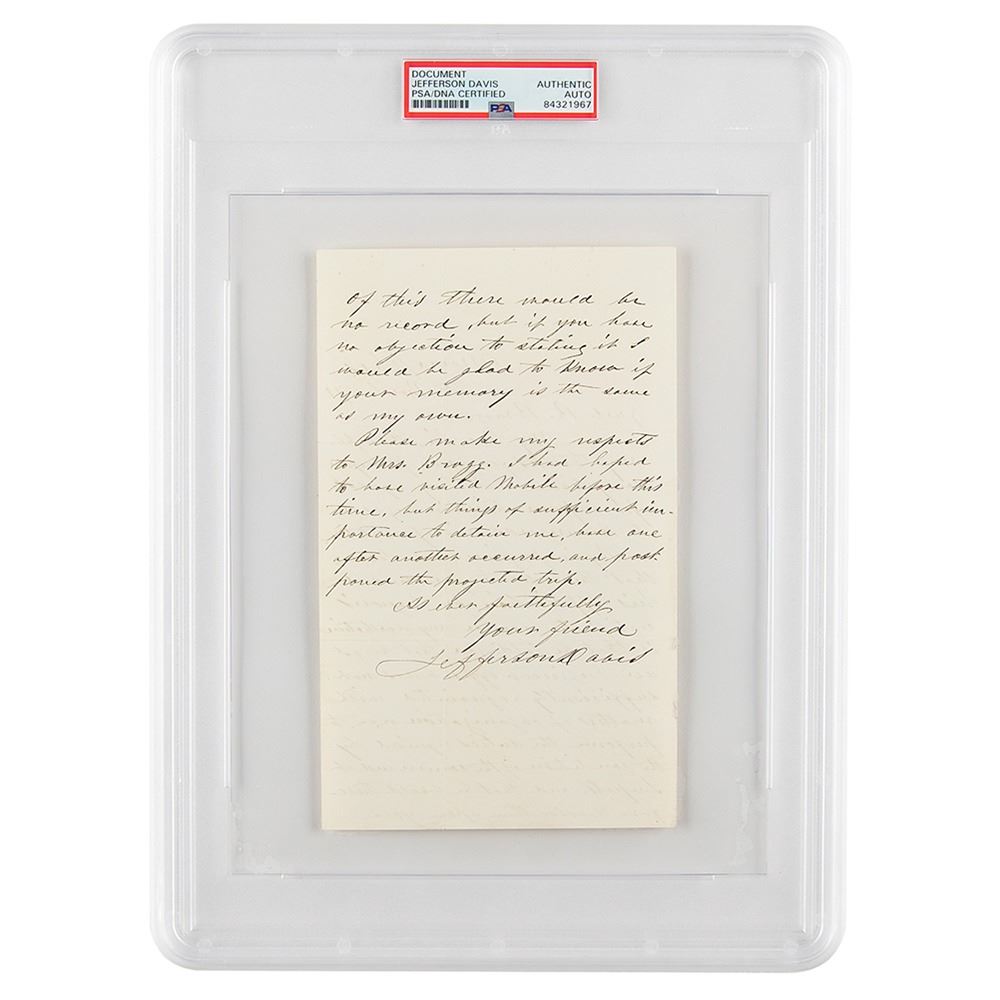 DOCUMENT
JEFFERSON DAVIS
PSA/DNA CERTIFIED
AUTHENTIC
AUTO
84321967
PSA
of this there would be
no record, but if you have
no objection to stating it I
would be glad to know if
your memory is the same
as my own.
Please make my respects
to Mrs. Bragg. I had hoped
to have visited Mobile before this
time, but things of sufficient im-
portance to detain me, have one
after another occurred, and post
poned the projected trip.
As ever faithfully
Your friend
Jefferson Davis